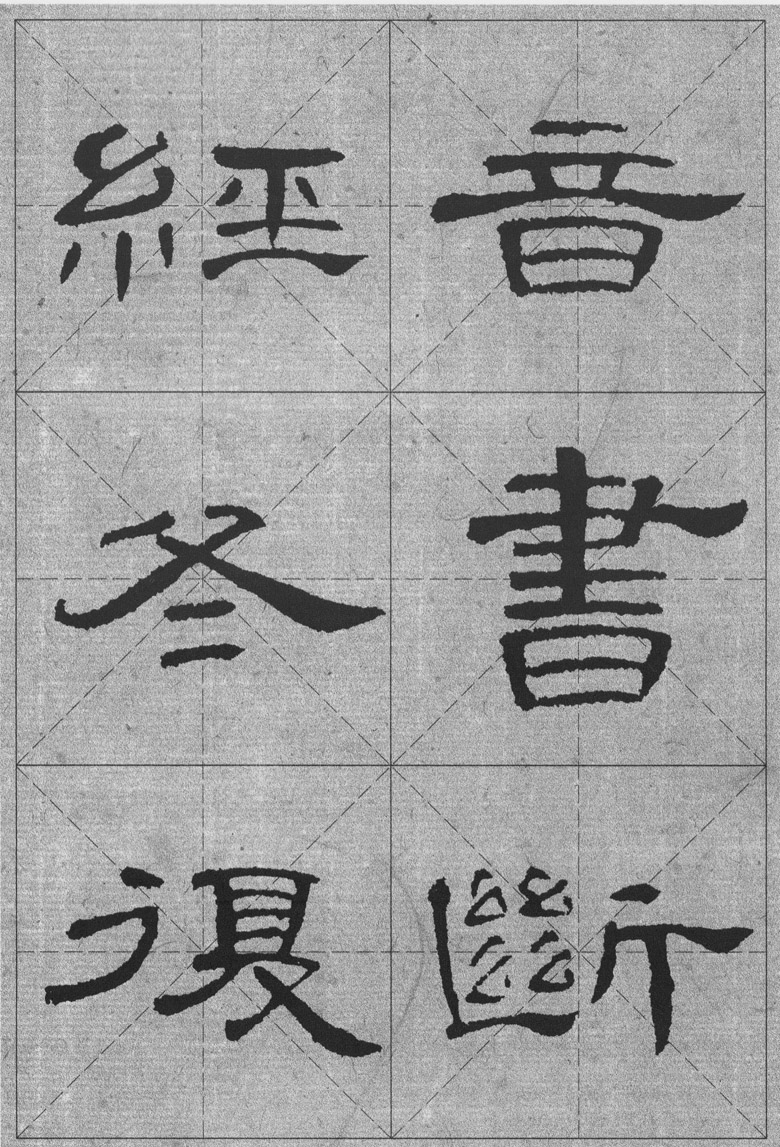 音書斷
經冬復